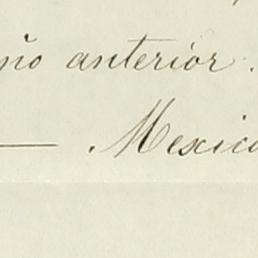 ño anterior.
— . Mexico